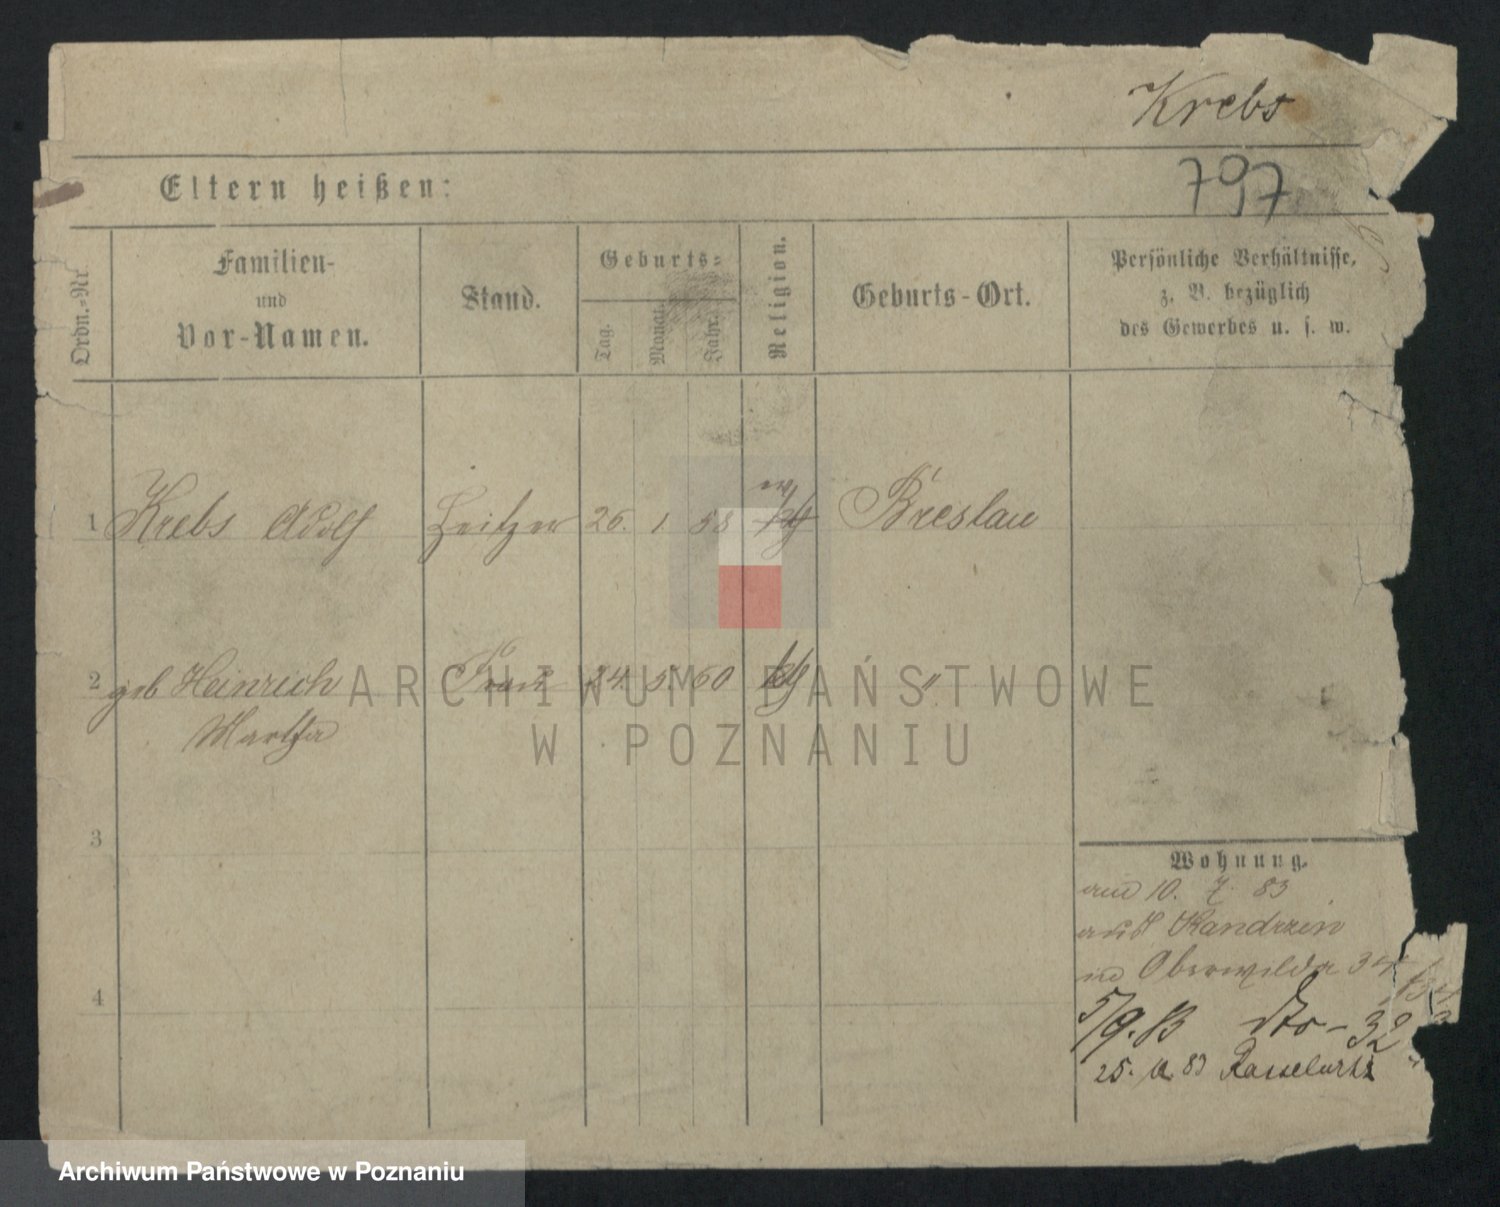 Krebs
797
Eltern heißen:
Ordn.-Nr.
Familien-
und
Vor-Namen.
Stand.
Geburts-
Tag.
Monat.
Jahr.
Religion.
Geburts-Ort.
Persönliche Verhältnisse,
z. B. bezüglich
des Gewerbes u. s. w.
1 Krebs Adolf Heitzer 26. 1. 58 ev Breslau
2 geb Heinrich Frau 24. 5. 60 kth "
Martha
3
4
Wohnung.
am 10. 7. 83
aus Kandrzin
in Oberwilda 34
5/9. 83 dto - 32
25. 83
ARCHIWUM PAŃSTWOWE
W POZNANIU
Archiwum Państwowe w Poznaniu